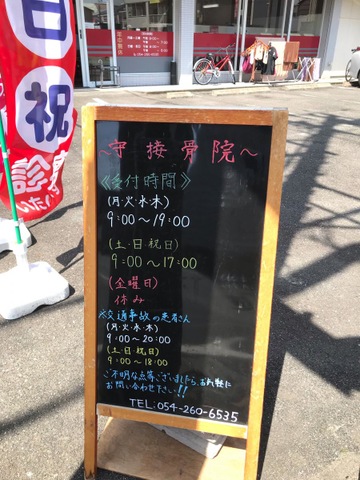 ～守接骨院～
《受付時間》
(月・火・水・木)
9:00～19:00
(土・日・祝日)
9:00～17:00
(金曜日)
休み
※交通事故の患者さん
(月、火、水、木)
9:00～20:00
(土・日・祝日)
9:00～18:00
ご不明な点等ございましたら、お気軽に
お問い合わせ下さい!!
TEL:054-260-6535
日
祝
診
年中無休